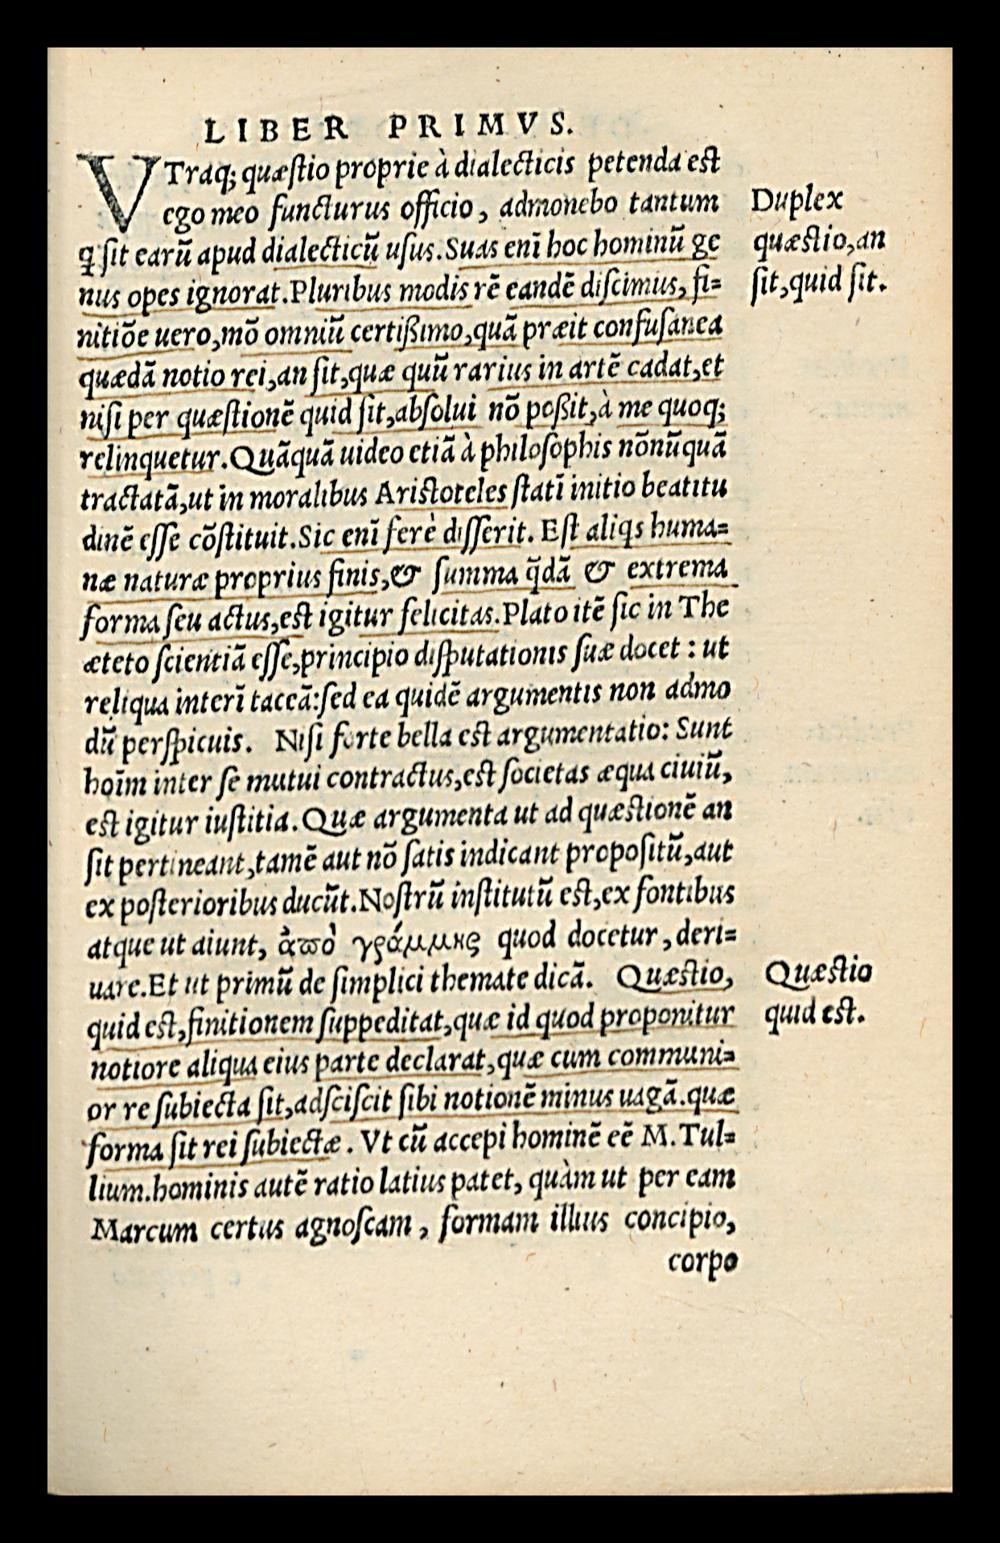 LIBER PRIMVS.
VTraq; quæstio proprie à dialecticis petenda est
ego meo functurus officio, admonebo tantum
Duplex
q̃ sit earũ apud dialecticũ usus. Suas enĩ hoc hominũ ge
quæstio, an
nus opes ignorat. Pluribus modis rẽ eandẽ discimus, fi=
sit, quid sit.
nitiõe uero, mõ omniũ certißimo, quã præit confusanea
quædã notio rei, an sit, quæ quũ rarius in artẽ cadat, et
nisi per quæstionẽ quid sit, absolui nõ poßit, à me quoq;
relinquetur. Quãquã uideo etiã à philosophis nõnũquã
tractatã, ut in moralibus Aristoteles statĩ initio beatitu
dinẽ esse cõstituit. Sic enĩ ferè disserit. Est aliqs huma=
næ naturæ proprius finis, & summa q̃dã & extrema
forma seu actus, est igitur felicitas. Plato itẽ sic in The
æteto scientiã esse, principio disputationis suæ docet : ut
reliqua interĩ taceã: sed ea quidẽ argumentis non admo
dũ perspicuis. Nisi forte bella est argumentatio: Sunt
hoĩm inter se mutui contractus, est societas æqua ciuiũ,
est igitur iustitia. Quæ argumenta ut ad quæstionẽ an
sit pertineant, tamẽ aut nõ satis indicant propositũ, aut
ex posterioribus ducũt. Nostrũ institutũ est, ex fontibus
atque ut aiunt, ἀπὸ γράμμης quod docetur, deri=
uare. Et ut primũ de simplici themate dicã. Quæstio,
Quæstio
quid est, finitionem suppeditat, quæ id quod proponitur
quid est.
notiore aliqua eius parte declarat, quæ cum communi=
or re subiecta sit, adsciscit sibi notionẽ minus uagã. quæ
forma sit rei subiectæ. Vt cũ accepi hominẽ eẽ M. Tul=
lium. hominis autẽ ratio latius patet, quàm ut per eam
Marcum certus agnoscam, formam illius concipio,
corpo